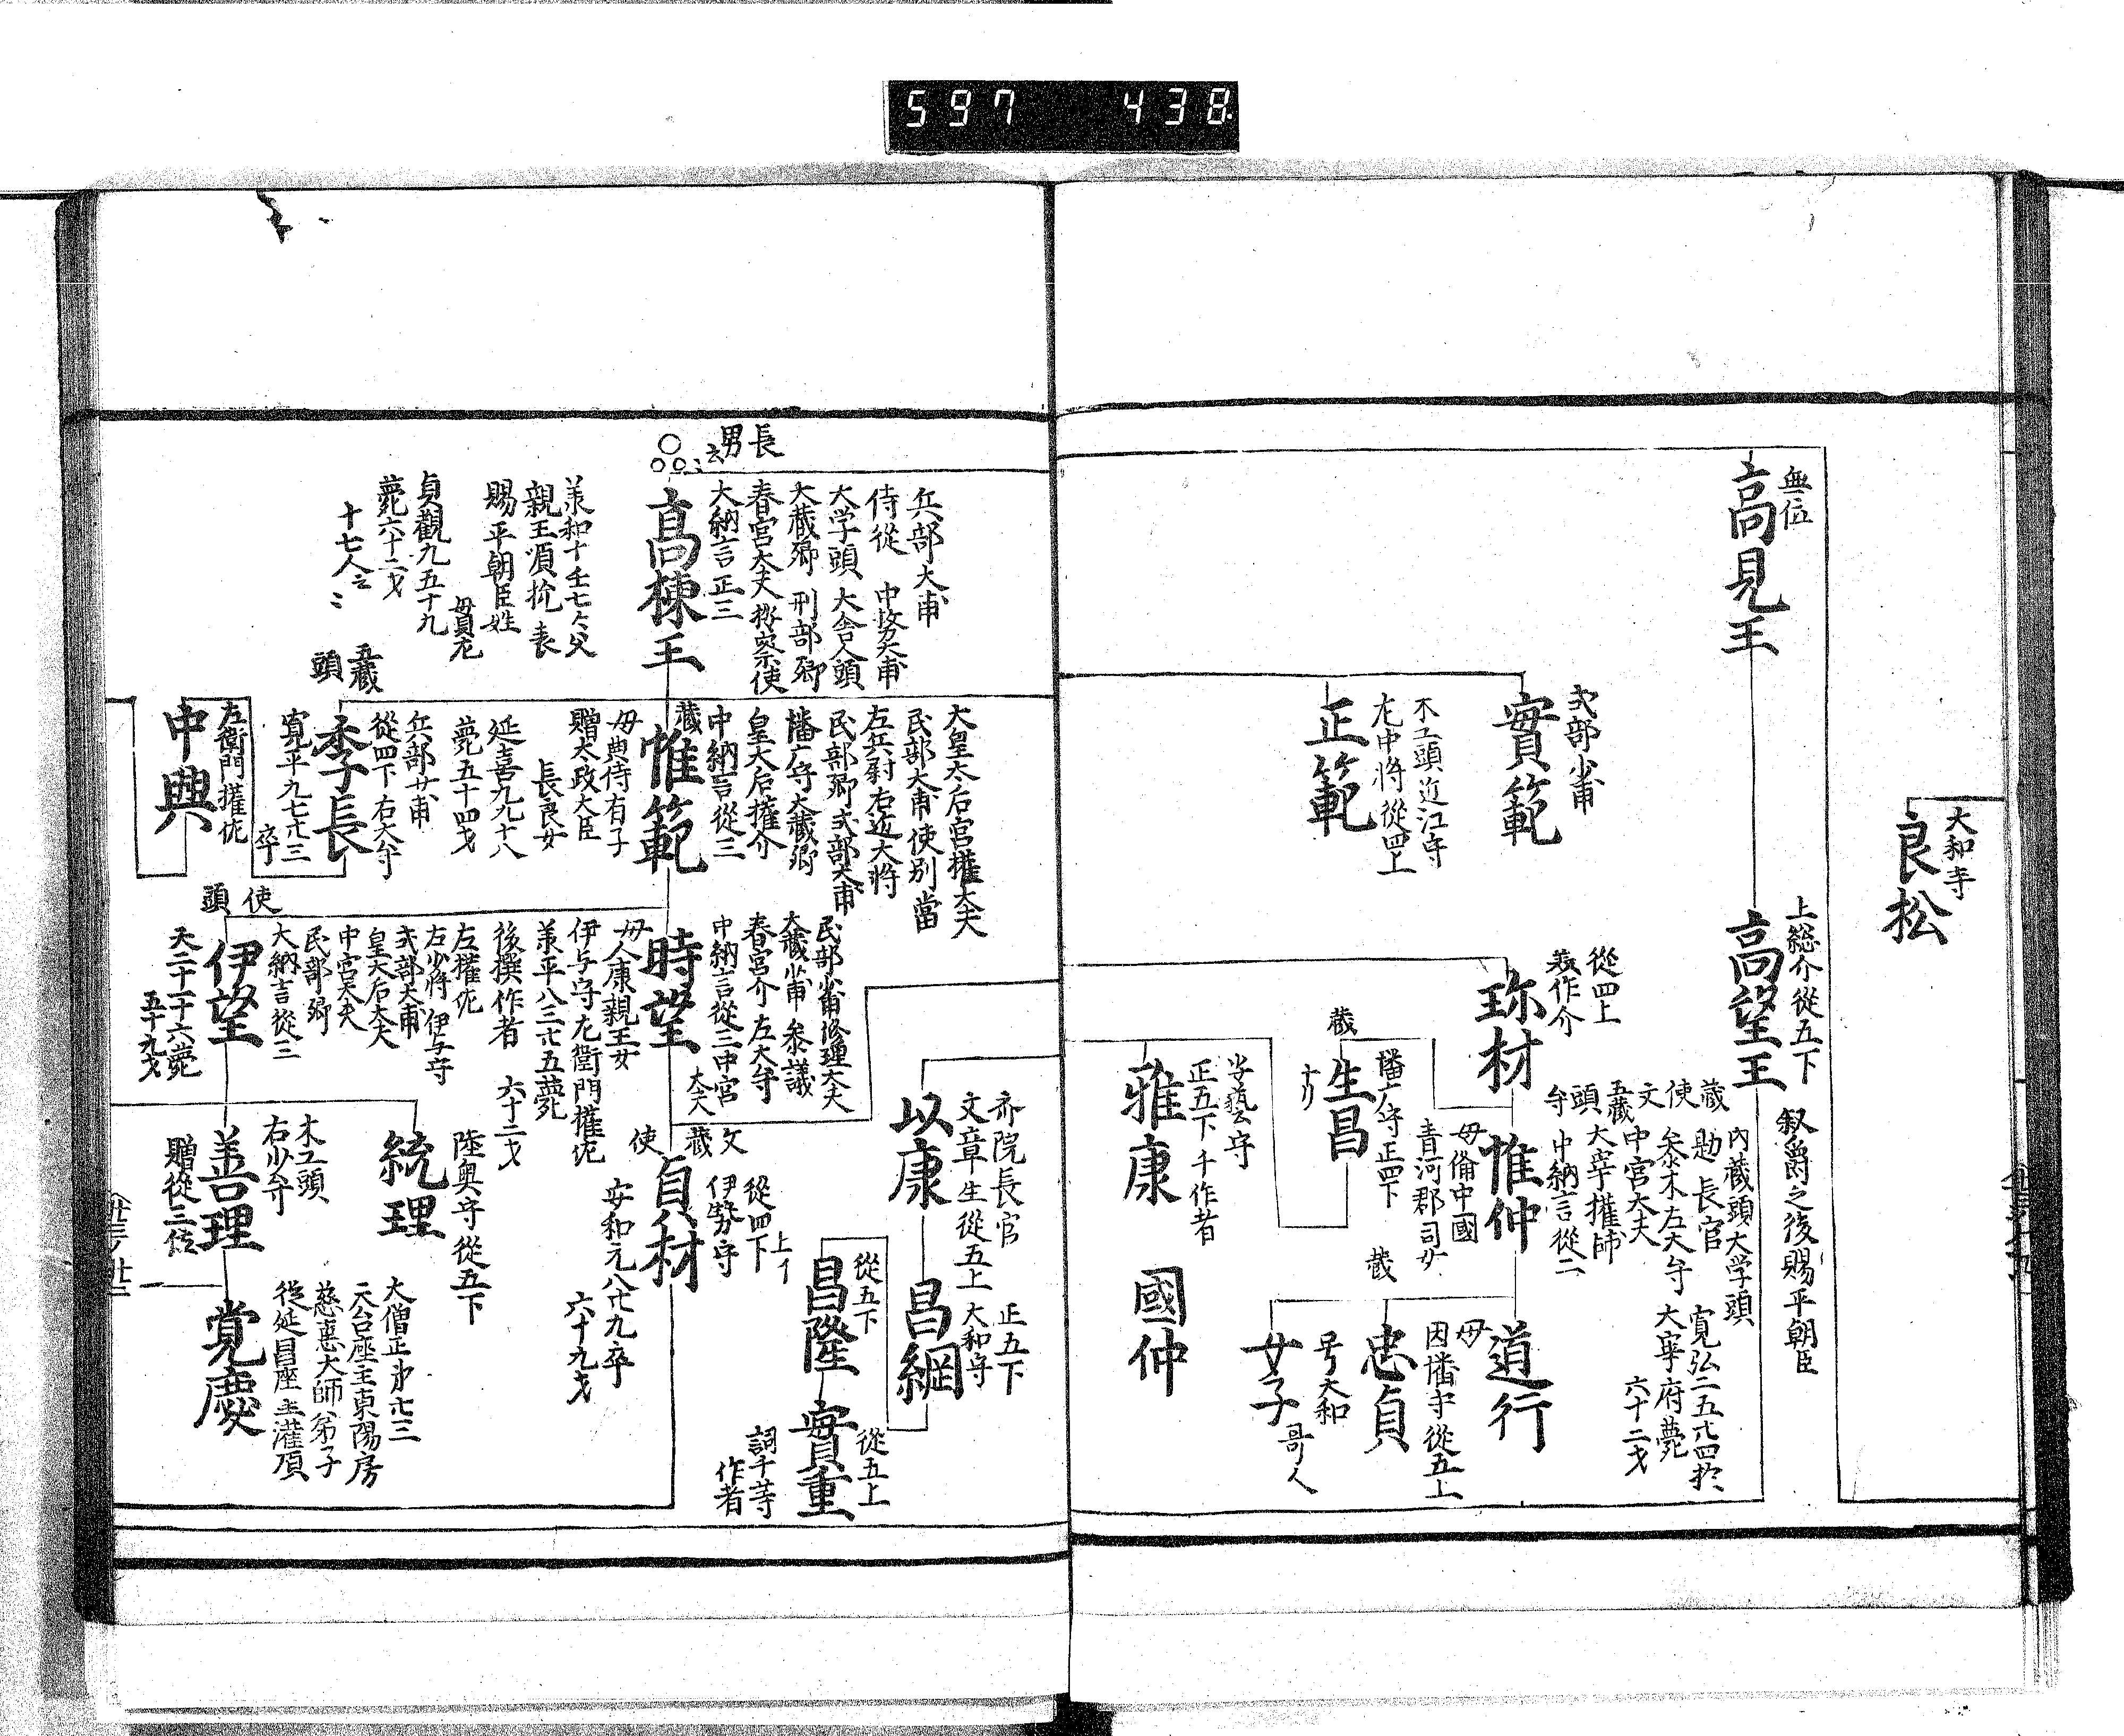 597 438
大和守
良松
無位
高見王
上総介從五下
高望王
叙爵之後賜平朝臣
式部少甫
實範
木工頭近江守
左中將從四上
正範
從四上
美作介
珎材
藏
使
文
五藏
頭
内藏頭大学頭
勘長官
参木左大弁
中宮大夫
大宰權帥
中納言從二
惟仲
寛弘二五廿四於
大宰府薨
六十二才
母備中國
青河郡司女
藏
生昌
播广守正四下
安藝守
正五下千作者
雅康
國仲
道行
母
因幡守從五上
藏
忠貞
号大和
哥人
女子
長
男
云
兵部大甫
侍從 中務大甫
大学頭大舎人頭
大藏卿 刑部卿
春宮大夫按察使
大納言正三
高棟王
親王須抗表
賜平朝臣姓
貞觀九五十九
薨六十二才
十七人云〻
大皇太后宮權大夫
民部大甫使別當
左兵尉右近大將
民部卿式部大甫
播广守大藏卿
皇大后權介
中納言從三
藏
惟範
母典侍有子
贈太政大臣
長良女
延喜九九十八
薨五十四才
五藏
頭
兵部少甫
從四下右大弁
季長
寛平九七廿三
卒
左衛門權佐
中興
民部少甫修理大夫
大藏少甫 参議
春宮介左大弁
中納言從三中宮
大夫
時望
母人康親王女
伊与守左衛門權佐
承平八三廿五薨
後撰作者 六十二才
使
頭
左權佐
右少將 伊与守
式部大甫
皇大后大夫
中宮大夫
民部卿
大納言從三
伊望
天二十一十六薨
五十九才
斎院長官
文章生從五上
以康
正五下
大和守
昌綱
從五下
昌隆
從五上
實重
詞千等
作者
文
藏
使
從四下
上イ
伊勢守
貞材
安和元八廿九卒
六十九才
陸奥守從五下
統理
木工頭
右少弁
善理
贈從三位
大僧正
天台座主東陽房
慈惠大師弟子
從延昌座主灌頂
覚慶